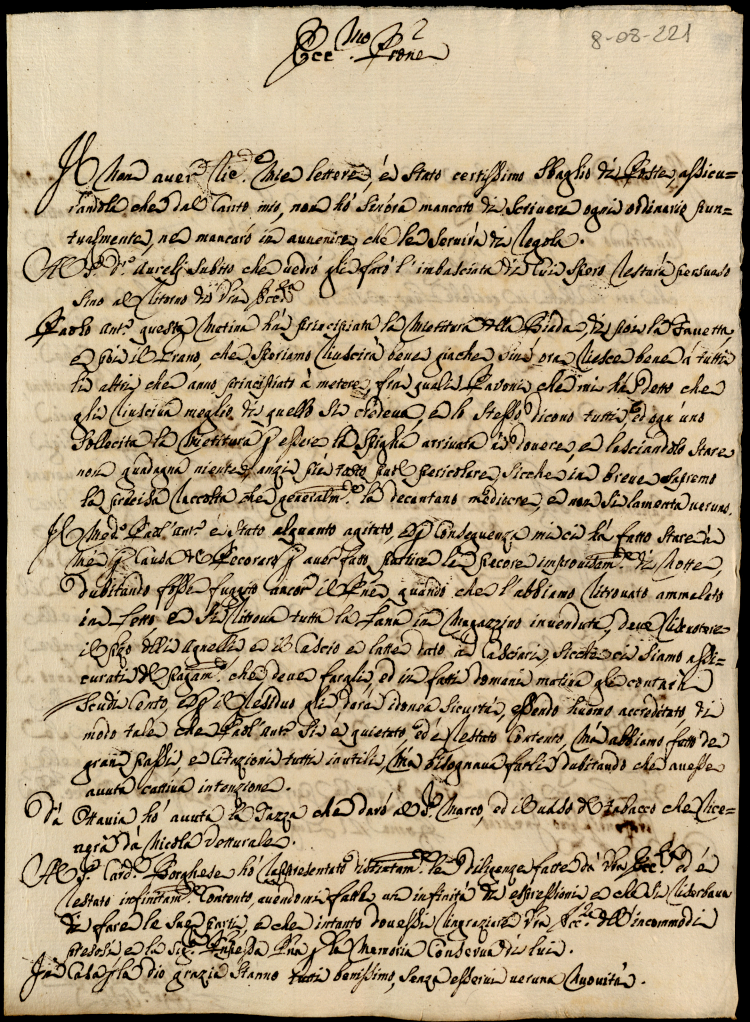 8-08-221
Ecc.mo Sig.r Prone
Il non aver ric.do mie lettere, è stato certissimo sbaglio di Poste, assicu=
randola, che dal canto mio, non hò sinora mancato di scrivere ogni ordinario pun=
tualmente, ne mancarò in avvenire, che le servirà di regola.
Al S.r D.r Aurelj subito che vedrò gli farò l'imbasciata di lui spero restarà persuaso
sino al ritorno di Vra Ecc.za
Paolo Ant.o questa matina hà principiata la mietitura della Biada, di poi la Favetta,
e poi il Grano, che speriamo riuscirà bene giache sin'ora riesce bene a tutti
li altri che anno principiato à metere, frà quali Pavoni che mi hà detto che
gli riusciva meglio di quello si credeva, e lo stesso dicono tutti, ed ogn'uno
sollecita la mietitura p essere la spigha arrivata à dovere, e lasciandolo stare
non guadagna niente, anzi più tosto può pericolare, sicche in breve sapremo
la precisa raccolta che generalm.te la decantano mediocre, e non si lamenta veruno.
Il med.o Paol'Ant.o è stato alquanto agitato, e p conseguenza mi ci hà fatto stare à
mè p causa del Pecoraro p aver fatto partire le pecore improvisam.te di notte,
dubitando fosse fuggito ancor il Pne, quando che l'abbiamo ritrovato ammalato
in letto e si ritrova tutta la lana in Magazzino invenduta, deve riscuotere
il przo delli Agnelli e il cascio e latte dato à Casciari, sicche ci siamo assi=
curati del pagam.to che deve farali, ed in fatti domani matina gli contarà
scudi cento, e p il residuo gli darà idonea sicurtà, essendo huomo accreditato, di
modo tale che Paol'Ant.o si è quietato ed è restato contento, mà abbiamo fatto de
gran passi e citazioni tutti inutili, mà bisognava farli dubitando che avesse
avuta cattiva intenzione.
Dà Ottavia hò avuta la Tazza che darò al S.r Marco, ed il vaso del tabacco che rice=
verà dà Nicola Vetturale.
Al S.r Card.l Borghese hò rappresentato distintam.te le diligenze fatte dà Vra Ecc.za ed è
restato infinitam.te contento, avendomi fatte un infinità di espressioni e che si riserbava
di fare le sue parti, e che intanto dovessi ringraziare Vra Ecc.za dell'incommodi
presesi e la Sig.ra Pnpessa Pna p la memoria conserva di lui.
In Casa p la dio grazia stanno tutti benissimo, senza esservi veruna novità.